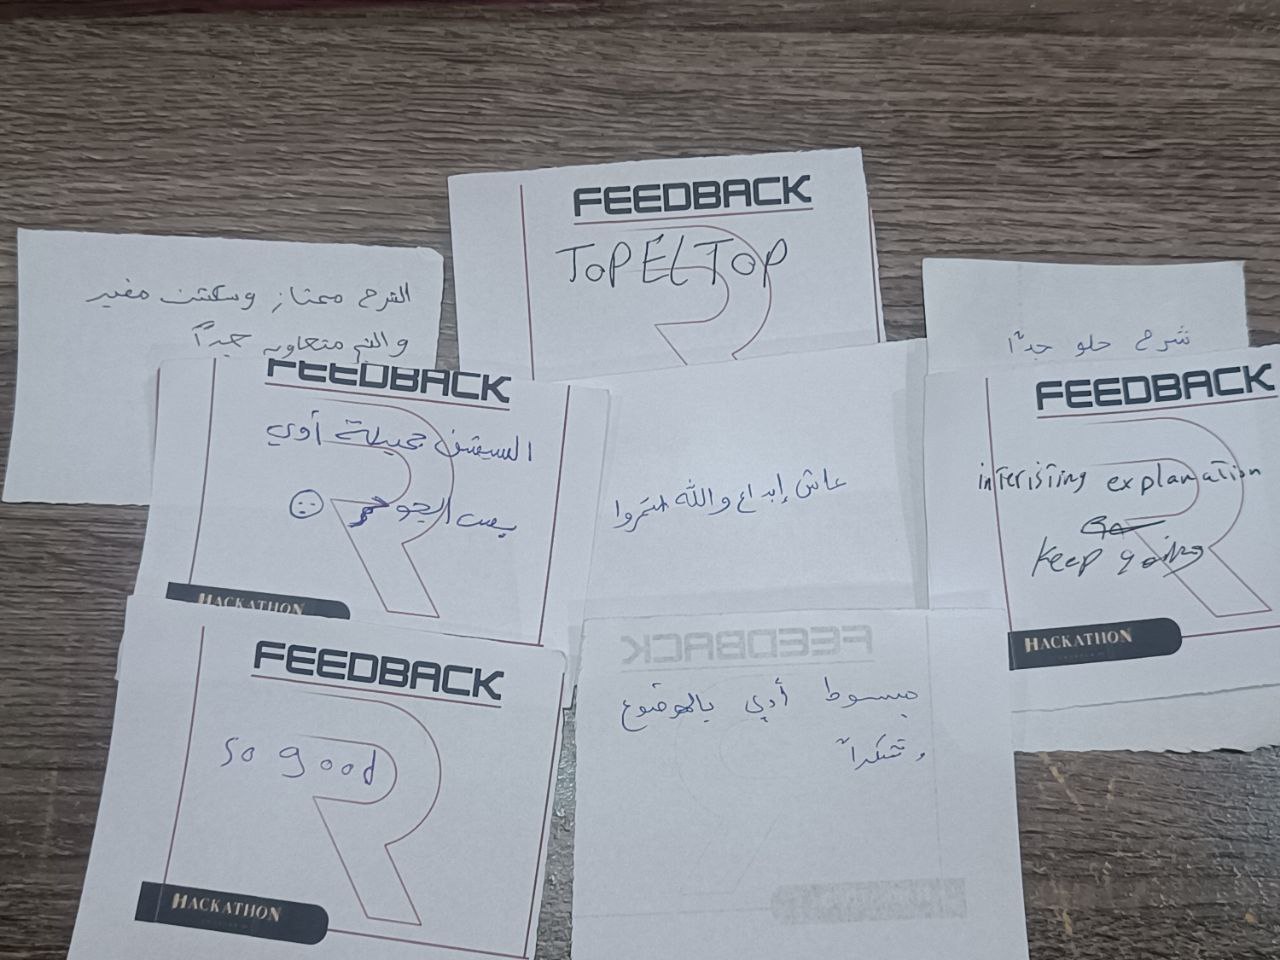 FEEDBACK
TOP EL TOP
الشرح ممتاز وسكشن مفيد
والتيم متعاون جداً
شرح حلو جداً
FEEDBACK
السيشن جميلة أوي
بس الجو حر
FEEDBACK
interisting explanation
Keep going
HACKATHON
عاش إبداع والله استمروا
HACKATHON
FEEDBACK
so good
HACKATHON
FEEDBACK
مبسوط أوي بالموضوع
وشكراً